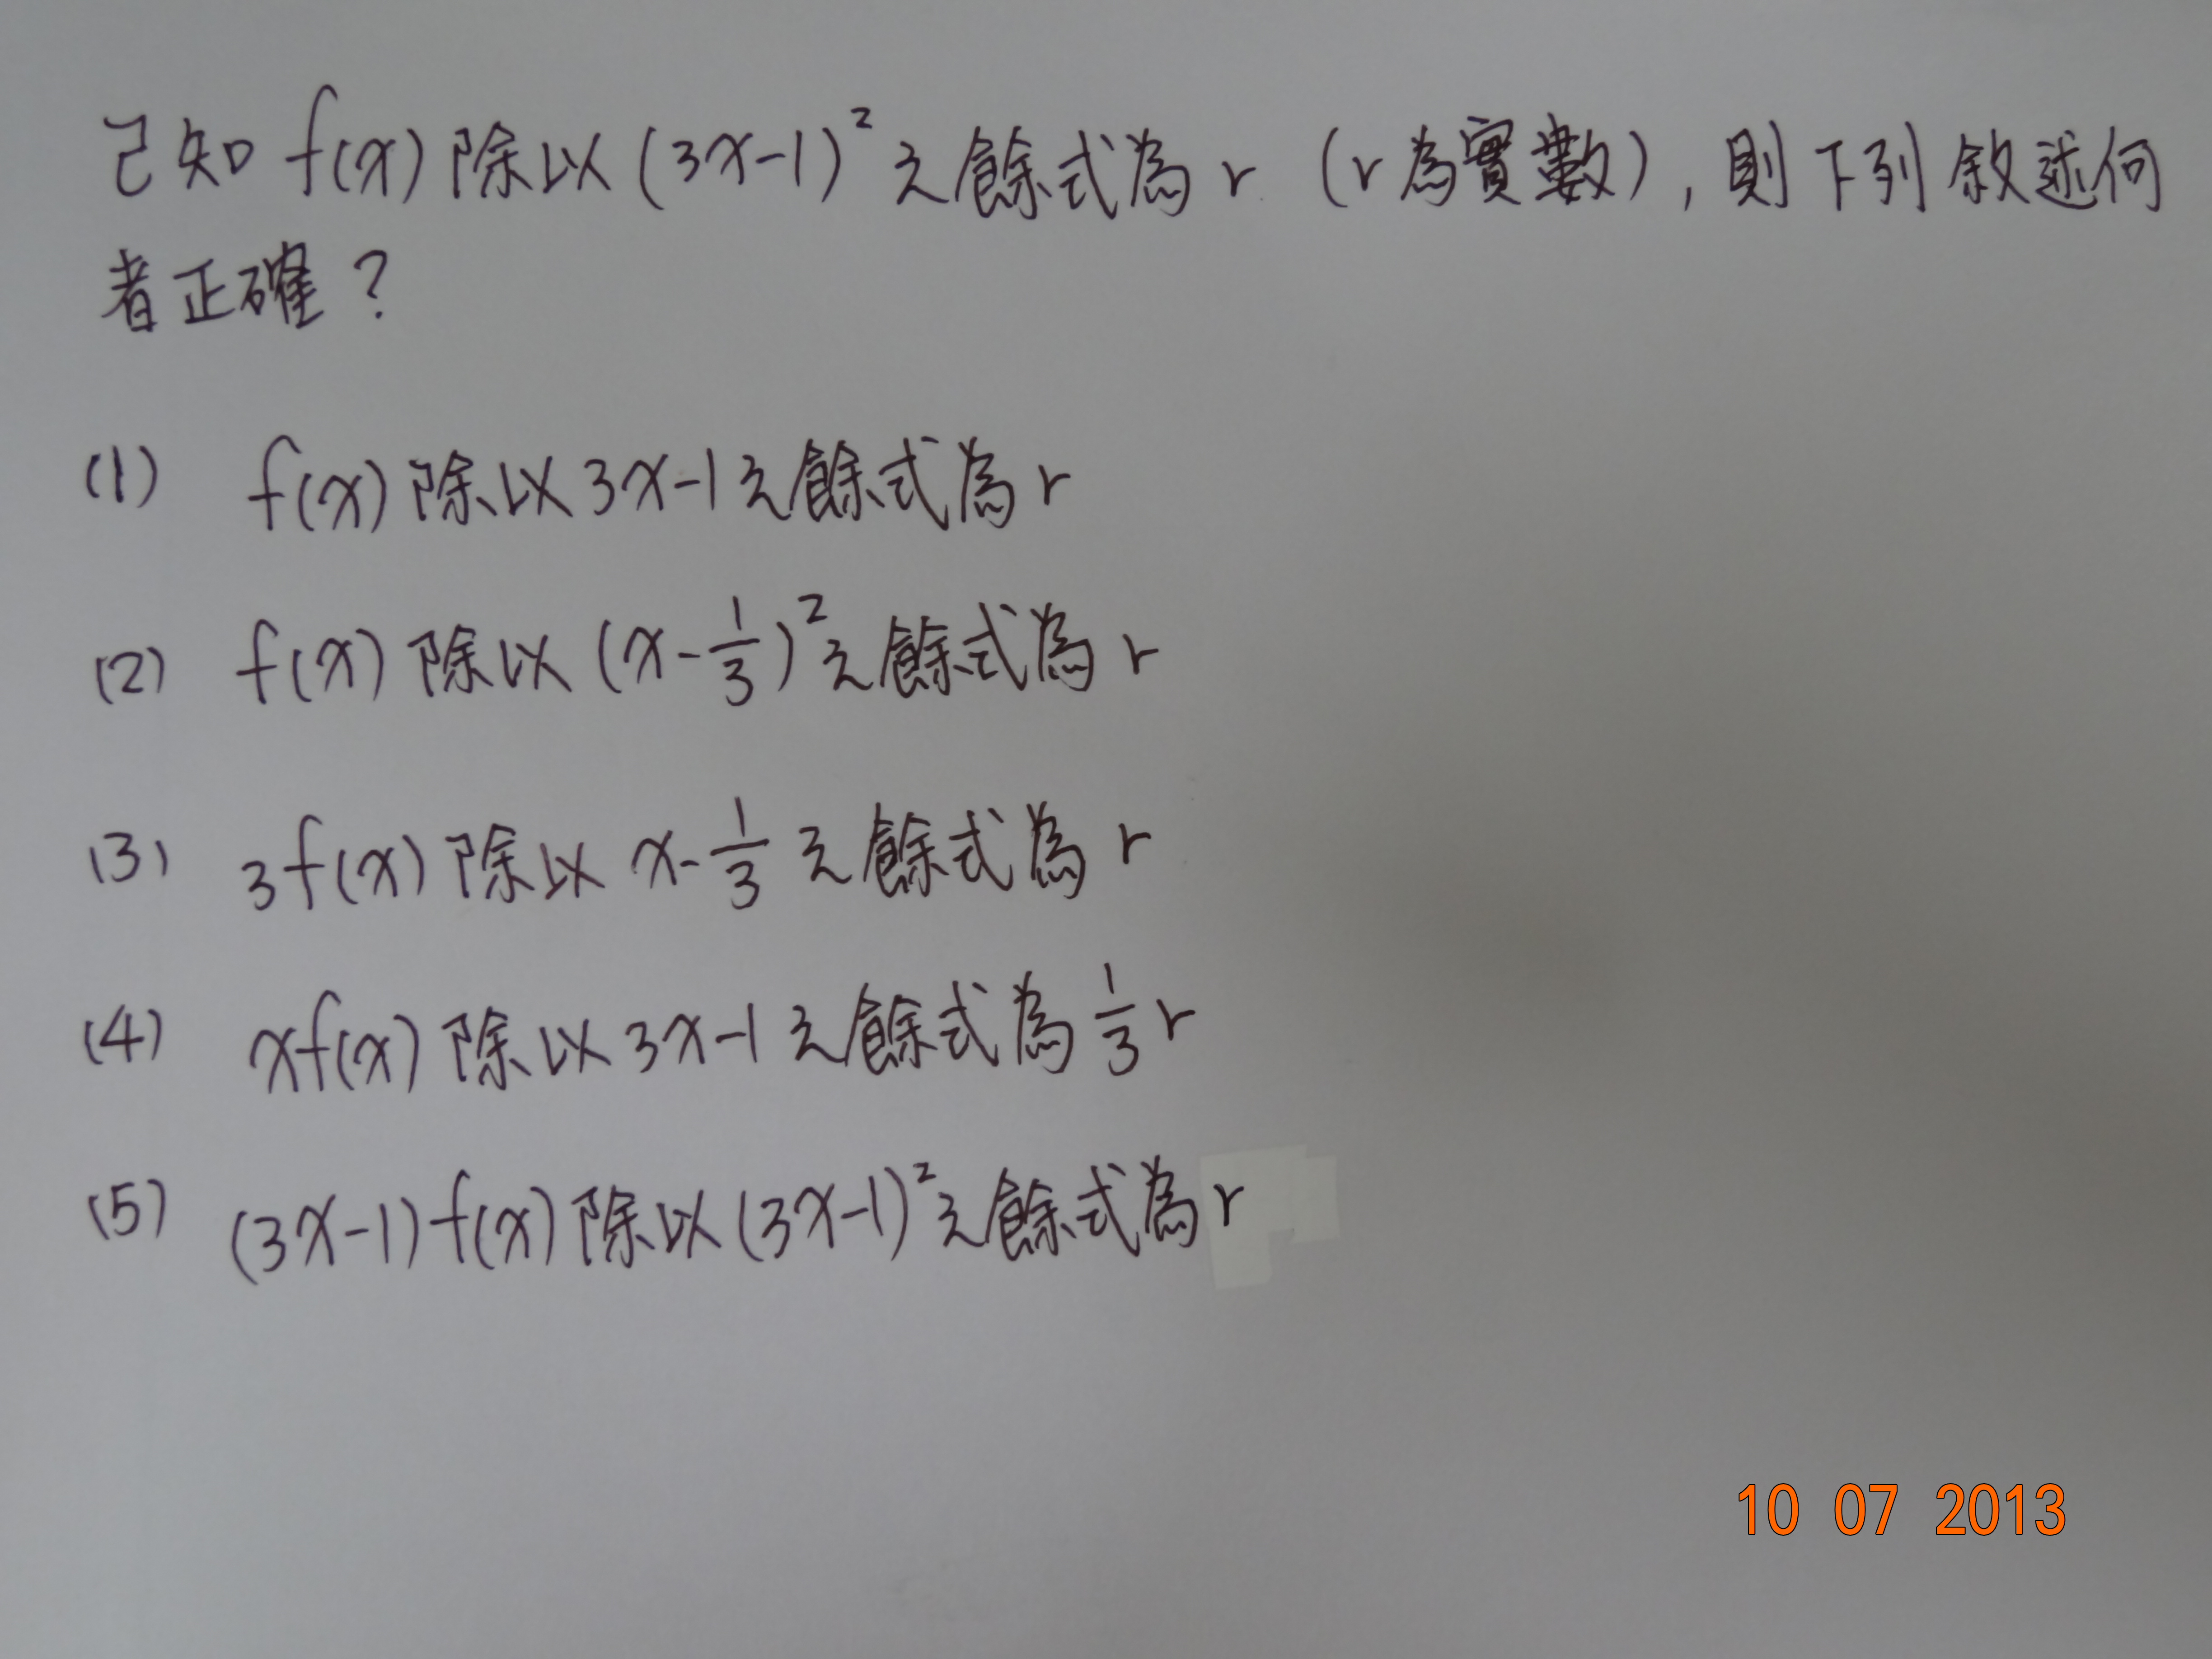 已知 f(x) 除以 (3x-1)² 之餘式為 r (r為實數), 則下列敘述何
者正確?
(1) f(x) 除以 3x-1 之餘式為 r
(2) f(x) 除以 (x-1/3)² 之餘式為 r
(3) 3f(x) 除以 x-1/3 之餘式為 r
(4) xf(x) 除以 3x-1 之餘式為 1/3 r
(5) (3x-1)f(x) 除以 (3x-1)² 之餘式為 r
10 07 2013